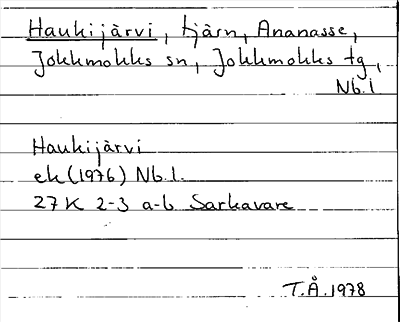 Haukijärvi, tjärn, Ananasse,
Jokkmokks sn, Jokkmokks tg,
Nb.l
Haukijärvi
ek (1976) Nb.l.
27K 2-3 a-b Sarkavare
T.Å. 1978